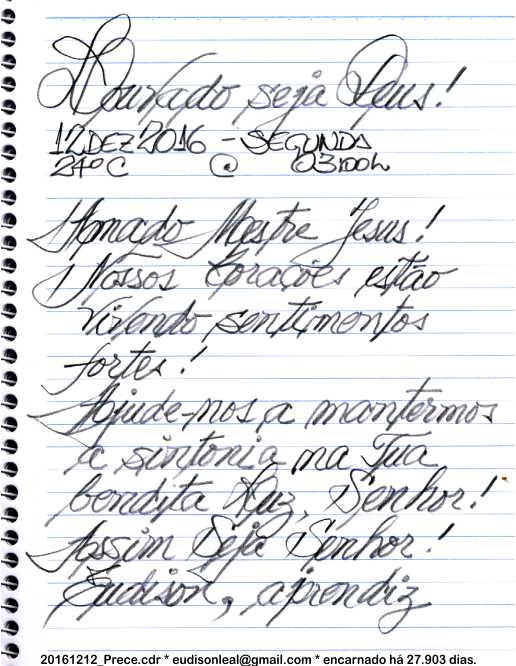 Louvado seja Deus!
12 DEZ 2016 - SEGUNDA
24°C @ 03:00h
Amado Mestre Jesus!
Nossos Corações estão
vivendo sentimentos
fortes!
Ajude-nos a mantermos
a sintonia na Tua
bendita Luz, Senhor!
Assim Seja Senhor!
Eudison, aprendiz
20161212_Prece.cdr * eudisonleal@gmail.com * encarnado há 27.903 dias.